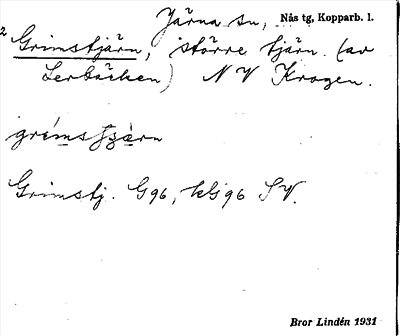 Järna sn, Nås tg, Kopparb. l.
2
Grimstjärn, större tjärn. (av
Lerbäcken) NV Kragen.
grímsʃʒàrn
Grimstj. G96, kG96 SV.
Bror Lindén 1931